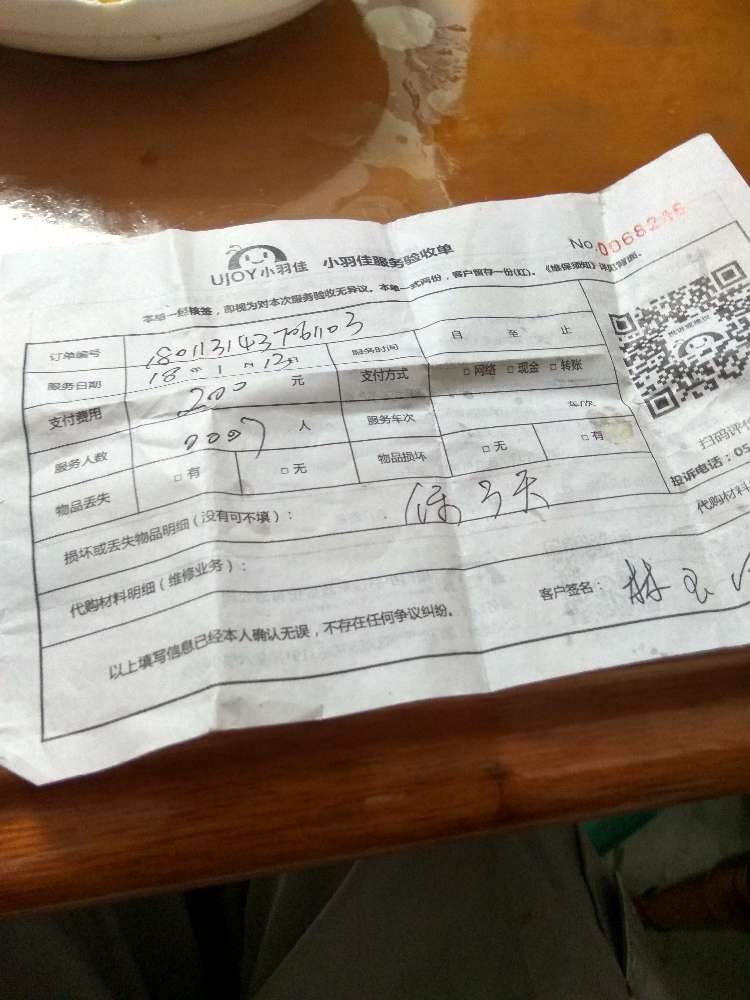 UJOY小羽佳 小羽佳服务验收单 No.0068246
本单一经核签，即视为对本次服务验收无异议。本单一式两份，客户留存一份(红)。《维保须知》详见背面。
订单编号 1801131437061103 服务时间 自 至 止
服务日期 18年1月12日
支付费用 200 元 支付方式 □网络 □现金 □转账
服务人数 人 服务车次 车/次
物品丢失 □有 □无 物品损坏 □无 □有
扫码评价
投诉电话：05
损坏或丢失物品明细（没有可不填）：
代购材料
代购材料明细（维修业务）：
以上填写信息已经本人确认无误，不存在任何争议纠纷。 客户签名：林玉